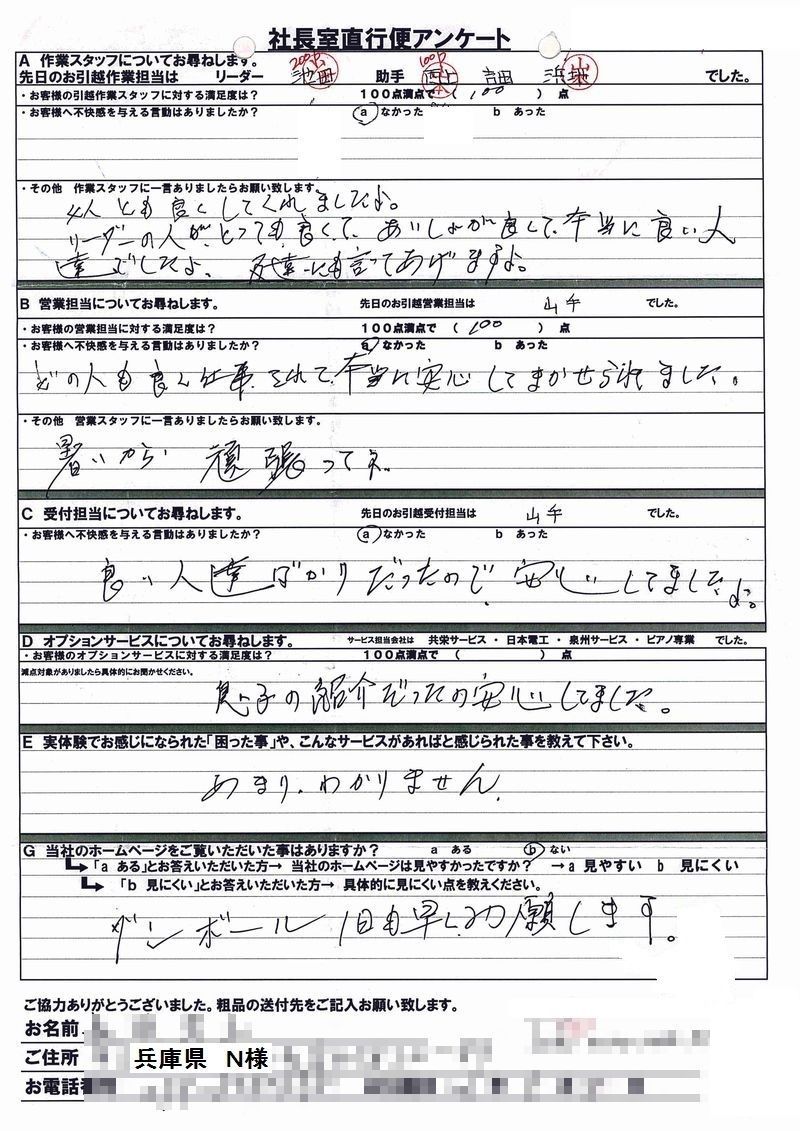 社長室直行便アンケート
A 作業スタッフについてお尋ねします。
先日のお引越作業担当は リーダー 池田 助手 吉田 でした。
・お客様の引越作業スタッフに対する満足度は? 100点満点で ( 100 ) 点
・お客様へ不快感を与える言動はありましたか? a なかった b あった
・その他 作業スタッフに一言ありましたらお願い致します。
4人とも良くしてくれましたよ。
リーダーの人が、とっても良くて、あいしょが良くて、本当に良い人
達でしたよ。友達にも言ってあげますよ。
B 営業担当についてお尋ねします。 先日のお引越営業担当は 山千 でした。
・お客様の営業担当に対する満足度は? 100点満点で ( 100 ) 点
・お客様へ不快感を与える言動はありましたか? a なかった b あった
どの人も良く仕事されて、本当に安心してまかせられました。
・その他 営業スタッフに一言ありましたらお願い致します。
暑いから 頑張ってネ
C 受付担当についてお尋ねします。 先日のお引越受付担当は 山千 でした。
・お客様へ不快感を与える言動はありましたか? a なかった b あった
良い人達ばかりだったので、安心してましたよ。
D オプションサービスについてお尋ねします。 サービス担当会社は 共栄サービス ・ 日本電工 ・ 泉州サービス ・ ピアノ専業 でした。
・お客様のオプションサービスに対する満足度は? 100点満点で ( ) 点
減点対象がありましたら具体的にお聞かせください。
息子の紹介だったの安心してました。
E 実体験でお感じになられた「困った事」や、こんなサービスがあればと感じられた事を教えて下さい。
あまり、わかりません
G 当社のホームページをご覧いただいた事はありますか? a ある b ない
「a ある」とお答えいただいた方→ 当社のホームページは見やすかったですか? →a 見やすい b 見にくい
「b 見にくい」とお答えいただいた方→ 具体的に見にくい点を教えください。
ダンボール 1日も早く お願します。
ご協力ありがとうございました。粗品の送付先をご記入お願い致します。
お名前
ご住所 兵庫県 N様
お電話番号